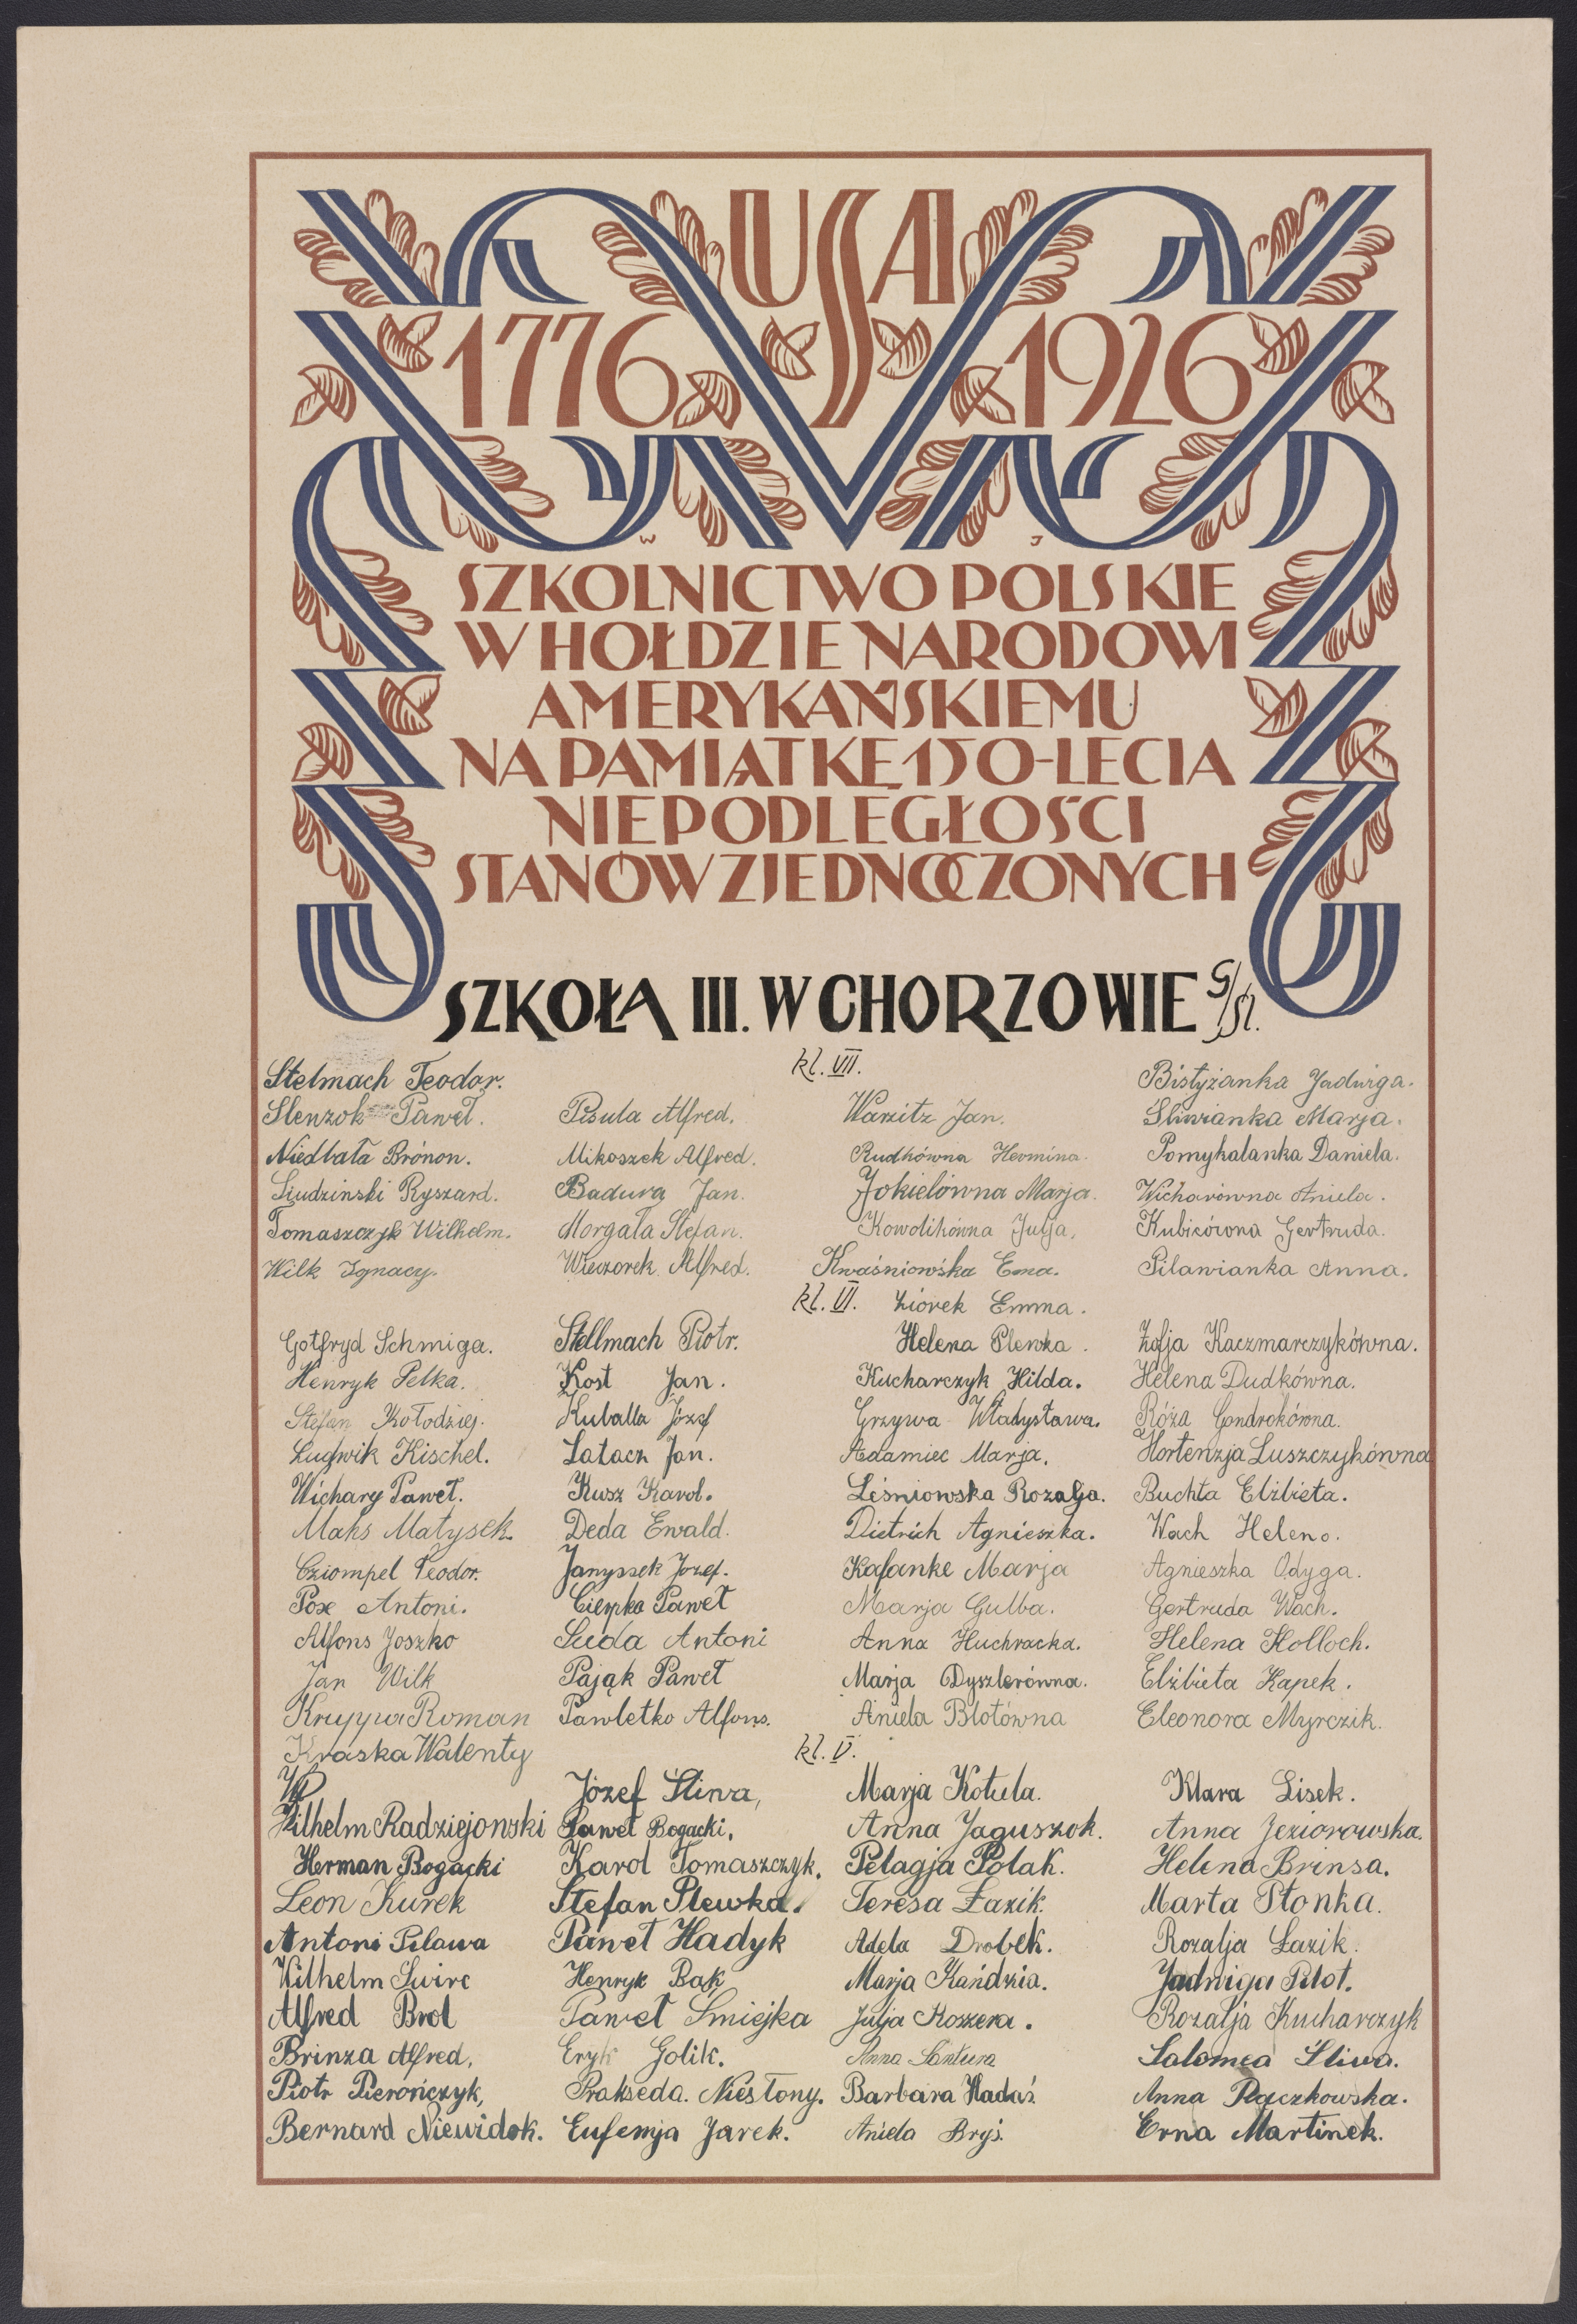 USA
1776 1926
W J
SZKOLNICTWO POLSKIE
W HOŁDZIE NARODOWI
AMERYKAŃSKIEMU
NA PAMIĄTKĘ 150-LECIA
NIEPODLEGŁOŚCI
STANÓW ZJEDNOCZONYCH
SZKOŁA III. W CHORZOWIE G/Śl.
kl. VII.
Stelmach Teodor. Bistyżanka Jadwiga.
Slenzok Paweł. Pisula Alfred. Warzitz Jan. Śliwianka Marja.
Niedbała Brónon. Mikoszek Alfred. Rudkówna Hermina. Pomykalanka Daniela.
Siudzinski Ryszard. Badura Jan. Jokielówna Marja. Wicharówna Aniela.
Tomaszczyk Wilhelm. Morgała Stefan. Kowolikówna Julja, Kubicówna Gertruda.
Wilk Ignacy. Wieczorek Alfred. Kwaśniowśka Ema. Pilawianka Anna.
kl. VI. Ziorek Emma.
Gotfryd Schmiga. Stellmach Piotr. Helena Plewka. Zofja Kaczmarczykówna.
Henryk Pelka. Kost Jan. Kucharczyk Hilda. Helena Dudkówna.
Stefan Kołodziej. Kuballa Józef Grzywa Władysława. Róża Gondrokówna.
Ludwik Kischel. Latacz Jan. Adamiec Marja. Hortenzja Luszczykówna
Wichary Paweł. Kusz Karol. Leśniowska Rozalja. Buchta Elżbieta.
Maks Matysek. Deda Ewald. Dietrich Agnieszka. Wach Helena.
Cziompel Teodor. Janyssek Jozef. Kafanke Marja Agnieszka Odyga.
Pox Antoni. Cierpka Paweł Marja Gulba. Gertruda Wach.
Alfons Joszko Suda Antoni Anna Huchracka. Helena Holloch.
Jan Wilk Pająk Paweł Marja Dyszlerówna. Elżbieta Kapek.
Kruppa Roman Pawletko Alfons. Aniela Blotówna Eleonora Myrczik.
Kraska Walenty
kl. V.
Józef Śliwa, Marja Kotula. Klara Lisek.
Wilhelm Radziejonski Paweł Bogacki, Anna Jaguszok. Anna Jeziorowska.
Herman Bogacki Karol Tomaszczyk. Pelagja Polak. Helena Brinsa.
Leon Kurek Stefan Plewka. Teresa Łazik. Marta Płonka.
Antoni Pilawa Paweł Hadyk Adela Drobek. Rozalja Łazik.
Wilhelm Swirc Henryk Bąk Marja Kańdzia. Jadwiga Pilot.
Alfred Brol Paweł Smiejka Julja Koszera. Rozalja Kucharczyk
Brinza Alfred, Eryk Golik. Anna Santura Salomea Śliwa.
Piotr Pierończyk, Prakseda. Niesłony. Barbara Hadaś. Anna Raczkowska.
Bernard Niewidok. Eufemja Jarek. Aniela Bryś. Erna Martinek.